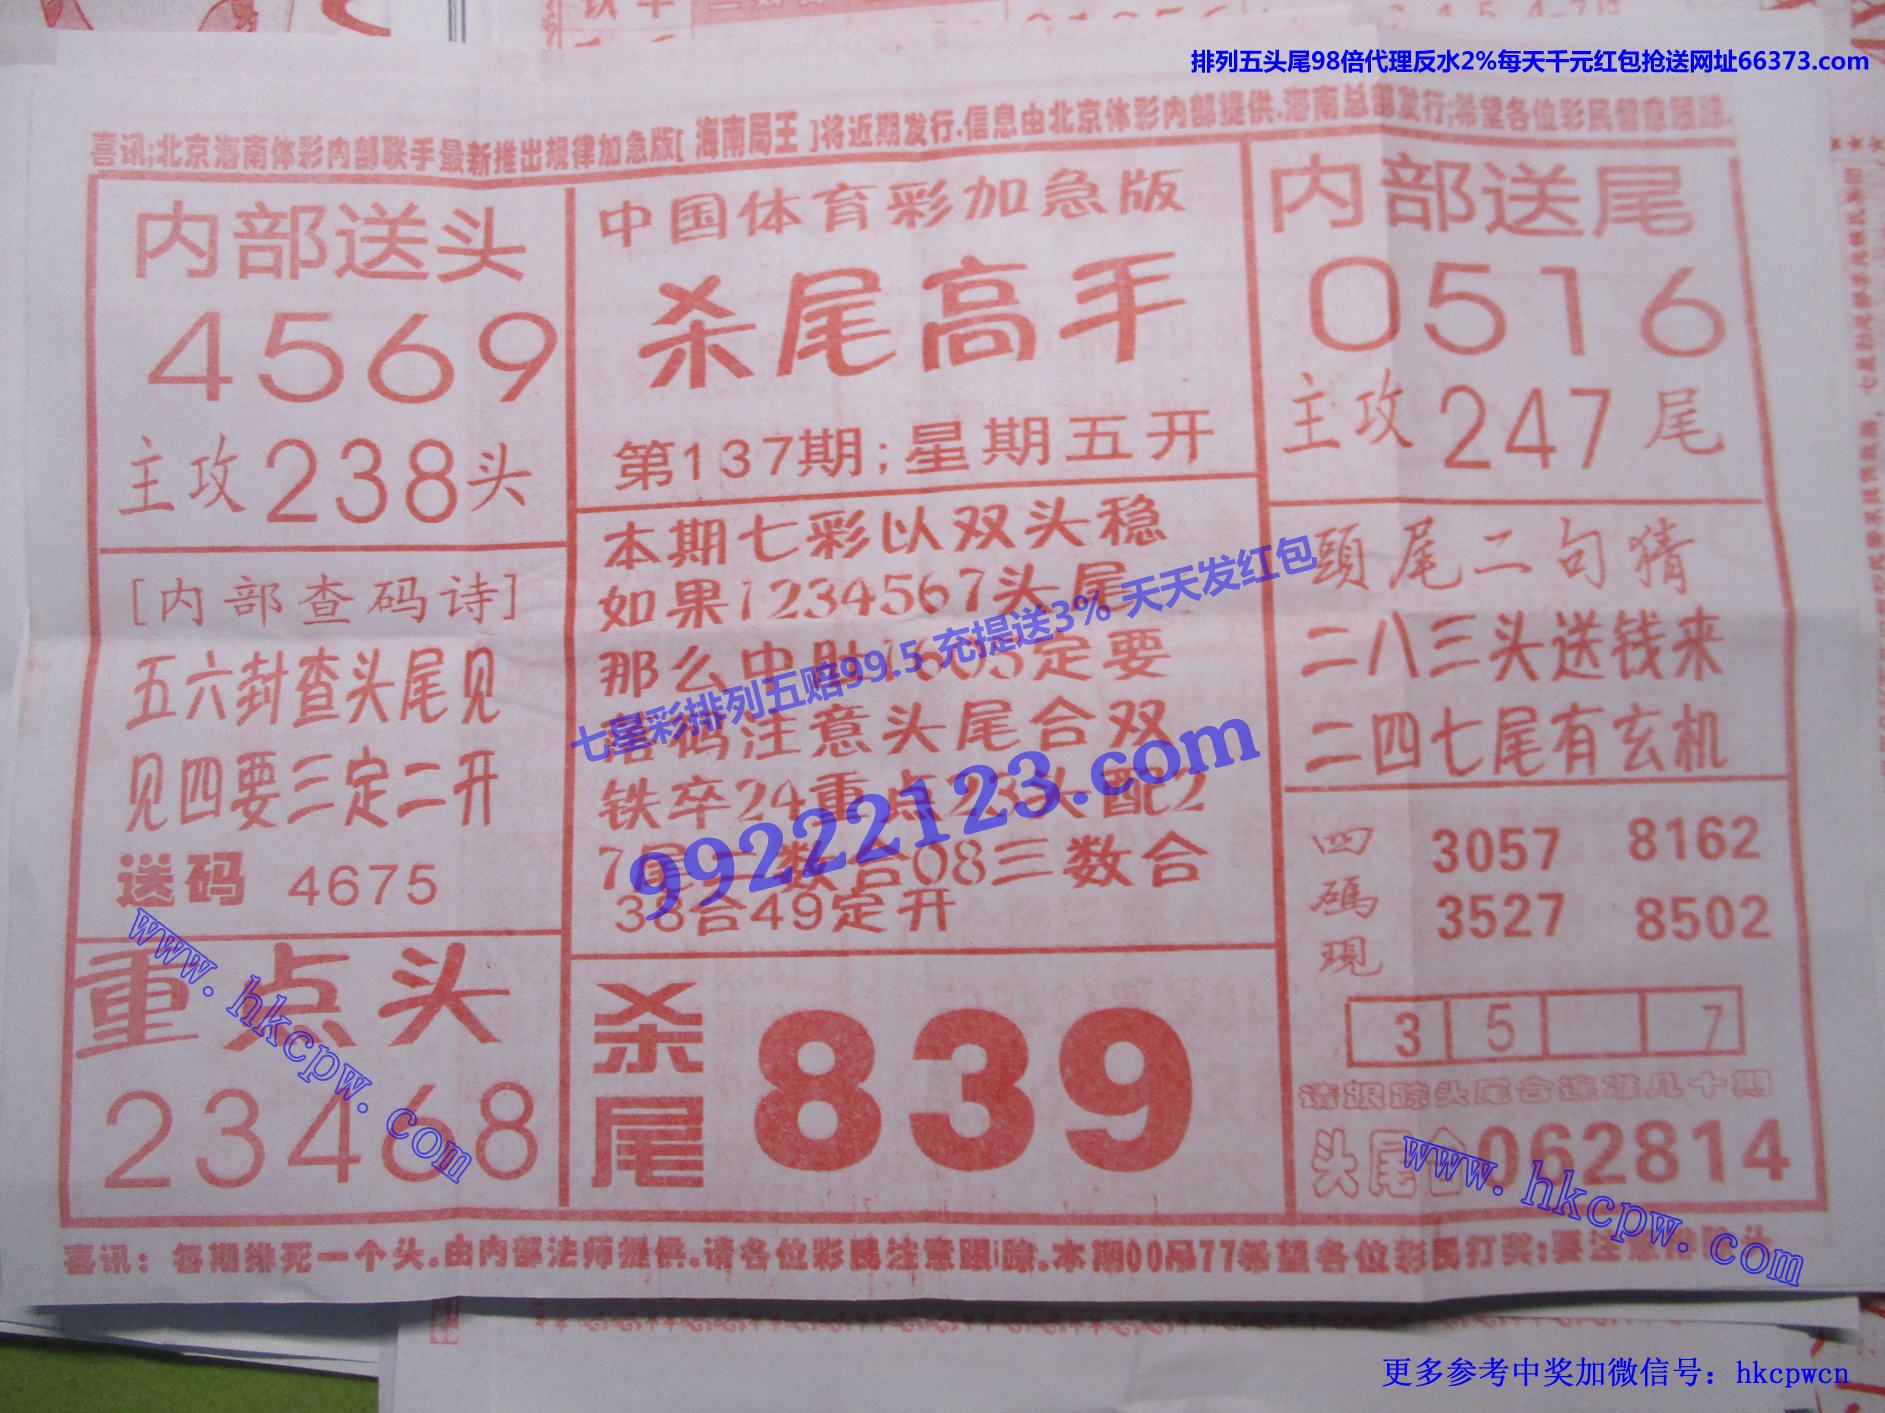 排列五头尾98倍代理反水2%每天千元红包抢送网址66373.com
喜讯;北京海南体彩内部联手最新推出规律加急版[ 海南局王 ]将近期发行.信息由北京体彩内部提供.海南总部发行;希望各位彩民留意跟踪.
内部送头
4569
主攻238头
[内部查码诗]
五六封查头尾见
见四要三定二开
送码 4675
重点头
23468
中国体育彩加急版
杀尾高手
第137期;星期五开
本期七彩以双头稳
如果1234567头尾
那么中肚1605定要
落码注意头尾合双
铁卒24重点238头配2
7尾二数合08三数合
38合49定开
杀尾 839
内部送尾
0516
主攻247尾
頭尾二句猜
二八三头送钱来
二四七尾有玄机
四碼現
3057 8162
3527 8502
3 5 7
请跟踪头尾合连准几十期
头尾合062814
喜讯: 每期排死一个头.由内部法师提供.请各位彩民注意跟踪.本期00吊77希望各位彩民打奖;要注意
七星彩排列五赔99.5 充提送3% 天天发红包
99222123.com
www.hkcpw.com
www.hkcpw.com
更多参考中奖加微信号：hkcpwcn